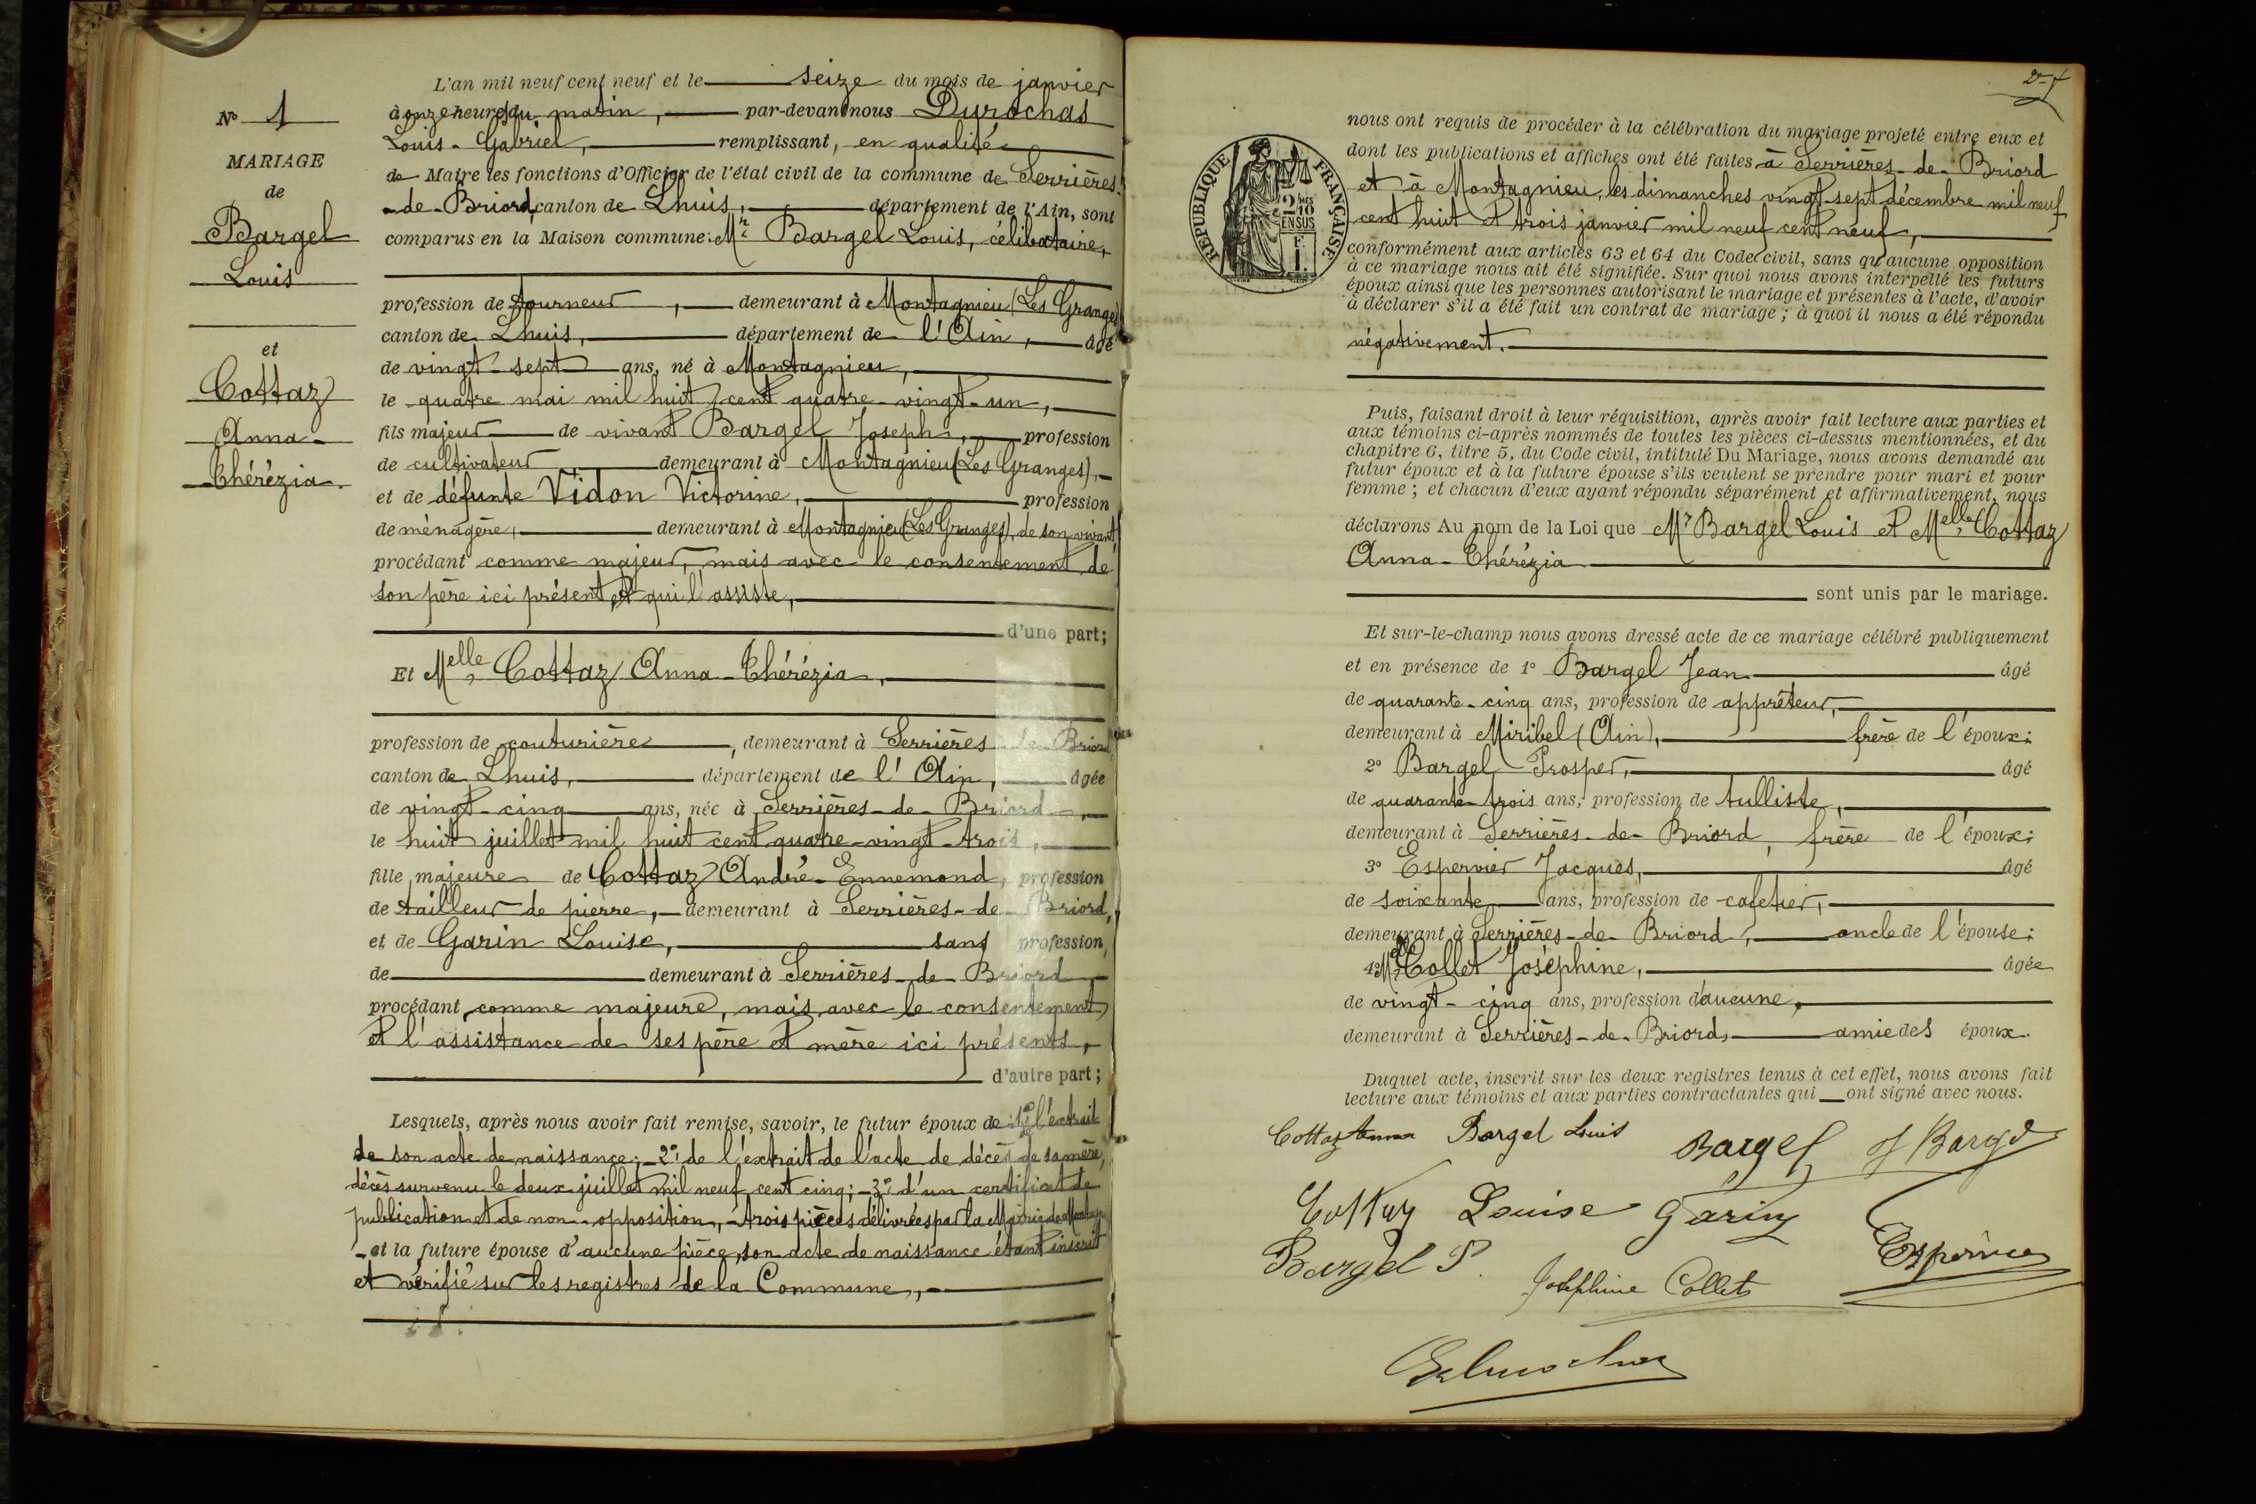 N° 1
MARIAGE
de
Bargel
Louis
et
Cottaz
Anna-
Thérézia.
L'an mil neuf cent neuf et le seize du mois de janvier
à onze heures du matin, par-devant nous Durochas
Louis-Gabriel, remplissant, en qualité
de Maire les fonctions d'Officier de l'état civil de la commune de Serrières-
-de-Briord canton de Lhuis, département de l'Ain, sont
comparus en la Maison commune: Mr Bargel Louis, célibataire,
profession de tourneur, demeurant à Montagnieu (Les Granges)
canton de Lhuis, département de l'Ain, âgé
de vingt-sept ans, né à Montagnieu,
le quatre mai mil huit cent quatre-vingt-un,
fils majeur de vivant Bargel Joseph, profession
de cultivateur demeurant à Montagnieu (Les Granges),
et de défunte Vidon Victorine, profession
de ménagère, demeurant à Montagnieu (Les Granges), de son vivant,
procédant comme majeur, mais avec le consentement de
son père ici présent et qui l'assiste,
d'une part;
Et Melle Cottaz Anna-Thérézia,
profession de couturière, demeurant à Serrières-de-Briord,
canton de Lhuis, département de l'Ain, âgée
de vingt-cinq ans, née à Serrières-de-Briord,
le huit juillet mil huit cent quatre-vingt-trois,
fille majeure de Cottaz André-Ennemond, profession
de tailleur de pierre, demeurant à Serrières-de-Briord,
et de Garin Louise, sans profession,
de demeurant à Serrières-de-Briord,
procédant comme majeure, mais avec le consentement
et l'assistance de ses père et mère ici présents,
d'autre part;
Lesquels, après nous avoir fait remise, savoir, le futur époux de: 1° l'extrait
de son acte de naissance; 2° de l'extrait de l'acte de décès de sa mère,
décès survenu le deux juillet mil neuf cent cinq; 3° d'un certificat de
publication et de non-opposition, trois pièces délivrées par la Mairie de
- et la future épouse d'aucune pièce, son acte de naissance étant inscrit
et vérifié sur les registres de la Commune,
RÉPUBLIQUE FRANÇAISE
2/10
EN SUS
F.
1.
nous ont requis de procéder à la célébration du mariage projeté entre eux et
dont les publications et affiches ont été faites à Serrières-de-Briord
et à Montagnieu, les dimanches vingt-sept décembre mil neuf
cent huit et trois janvier mil neuf cent neuf,
conformément aux articles 63 et 64 du Code civil, sans qu'aucune opposition
à ce mariage nous ait été signifiée. Sur quoi nous avons interpellé les futurs
époux ainsi que les personnes autorisant le mariage et présentes à l'acte, d'avoir
à déclarer s'il a été fait un contrat de mariage; à quoi il nous a été répondu
négativement.
Puis, faisant droit à leur réquisition, après avoir fait lecture aux parties et
aux témoins ci-après nommés de toutes les pièces ci-dessus mentionnées, et du
chapitre 6, titre 5, du Code civil, intitulé Du Mariage, nous avons demandé au
futur époux et à la future épouse s'ils veulent se prendre pour mari et pour
femme; et chacun d'eux ayant répondu séparément et affirmativement, nous
déclarons Au nom de la Loi que Mr Bargel Louis et Melle Cottaz
Anna-Thérézia
sont unis par le mariage.
Et sur-le-champ nous avons dressé acte de ce mariage célébré publiquement
et en présence de 1° Bargel Jean âgé
de quarante-cinq ans, profession de apprêteur,
demeurant à Miribel (Ain), frère de l'époux;
2° Bargel Prosper, âgé
de quarante-trois ans, profession de tulliste,
demeurant à Serrières-de-Briord, frère de l'époux;
3° Espervier Jacques, âgé
de soixante ans, profession de cafetier,
demeurant à Serrières-de-Briord, oncle de l'épouse;
4° Melle Collet Joséphine, âgée
de vingt-cinq ans, profession d'aucune,
demeurant à Serrières-de-Briord, amie des époux.
Duquel acte, inscrit sur les deux registres tenus à cet effet, nous avons fait
lecture aux témoins et aux parties contractantes qui ont signé avec nous.
Cottaz Anna Bargel Louis Bargel J Bargel
Cottaz Louise Garin
Bargel P. Joséphine Collet